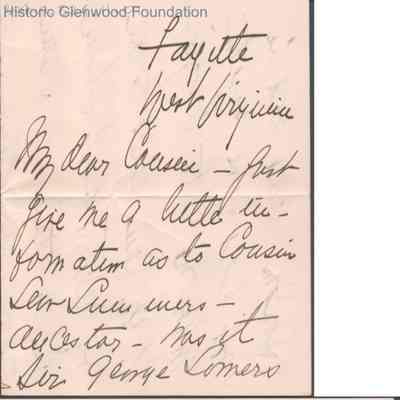 Historic Glenwood Foundation
Fayette
West Virginia
My dear Cousin – Just
give me a little in-
formation as to Cousin
Lew Summers –
ancestor – was it
Sir George Somers